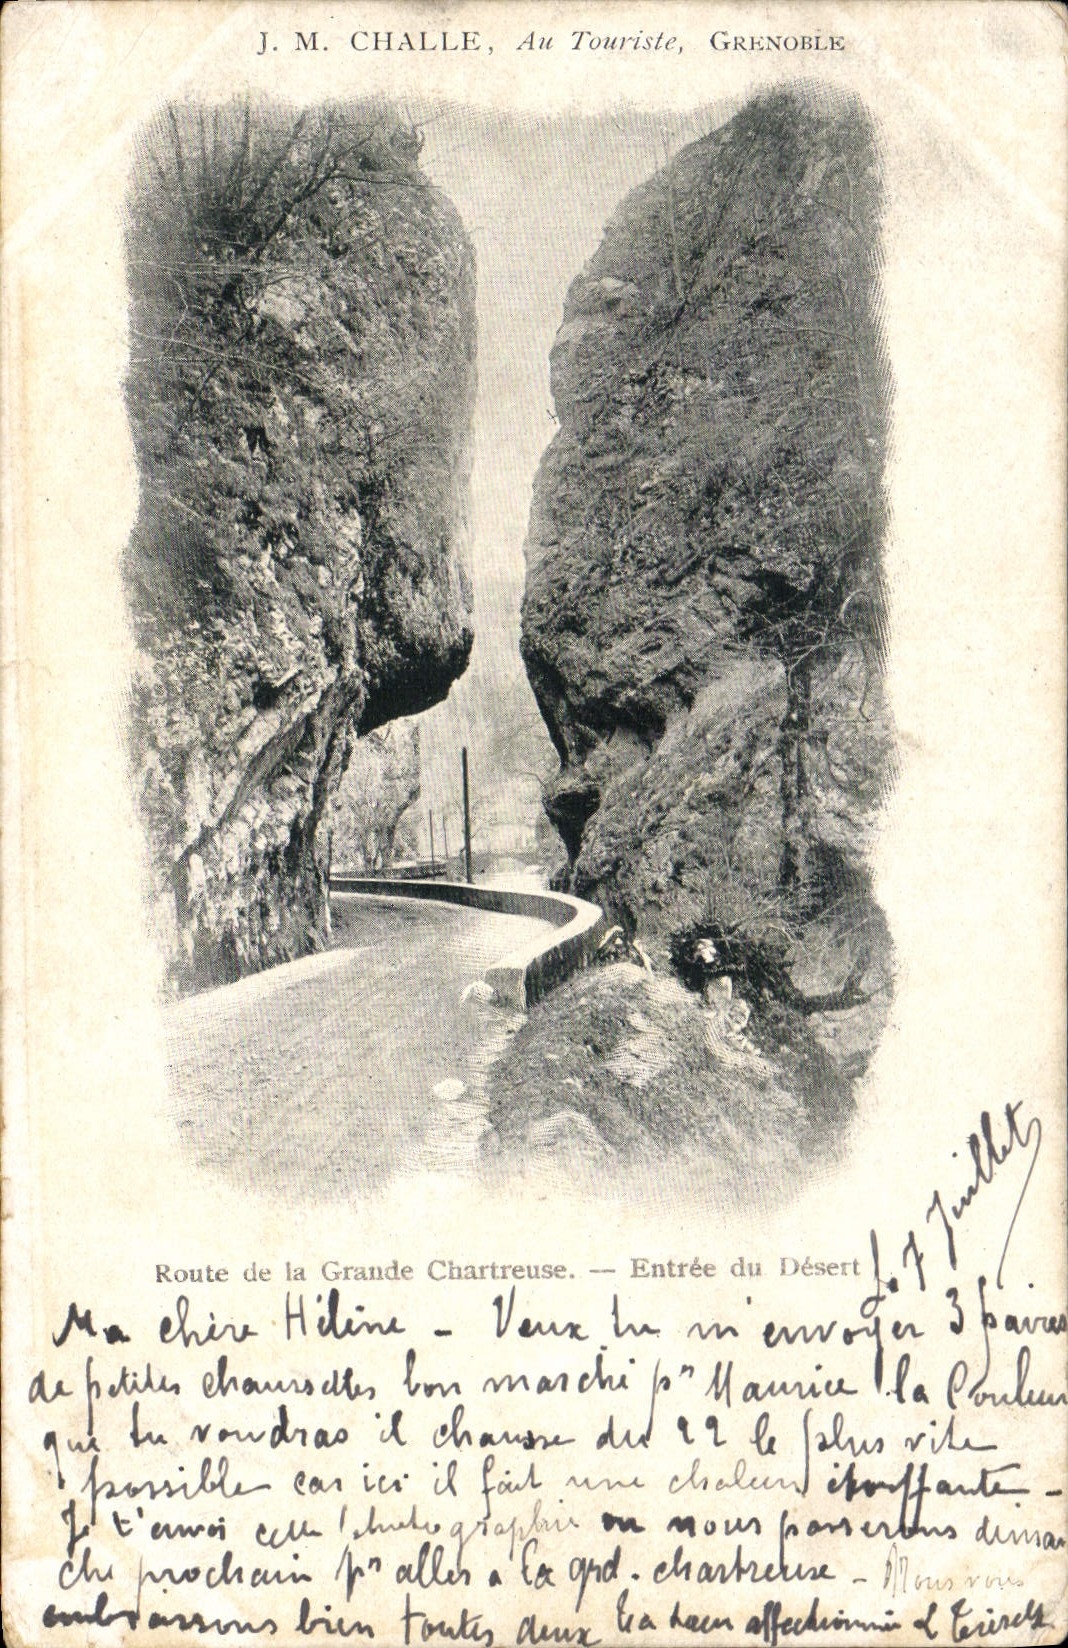 J. M. CHALLE, Au Touriste, GRENOBLE
Route de la Grande Chartreuse. — Entrée du Désert
7 Juillet
Ma chère Hélène - Veux tu m'envoyer 3 paires
de petites chaussettes bon marché pr Maurice la Couleur
que tu voudras il chausse du 22 le plus vite
possible car ici il fait une chaleur étouffante -
Je t'envoi cette photographie ou nous passerons diman
che prochain pr aller a la grd. chartreuse - Nous vous
embrassons bien toutes deux Ta affectionnée